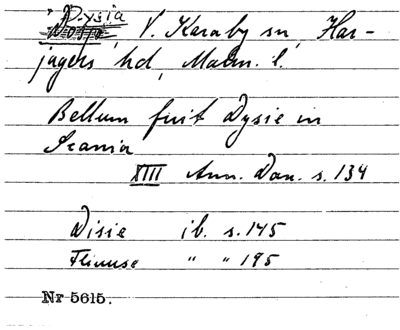 *Dysia
V. Karaby sn, Har-
jagers hd, Malm. l.
Bellum fuit Dysie in
Scania
XIII Ann. Dan. s. 134
Disie ib. s. 145
" " 195
Nr 5615.